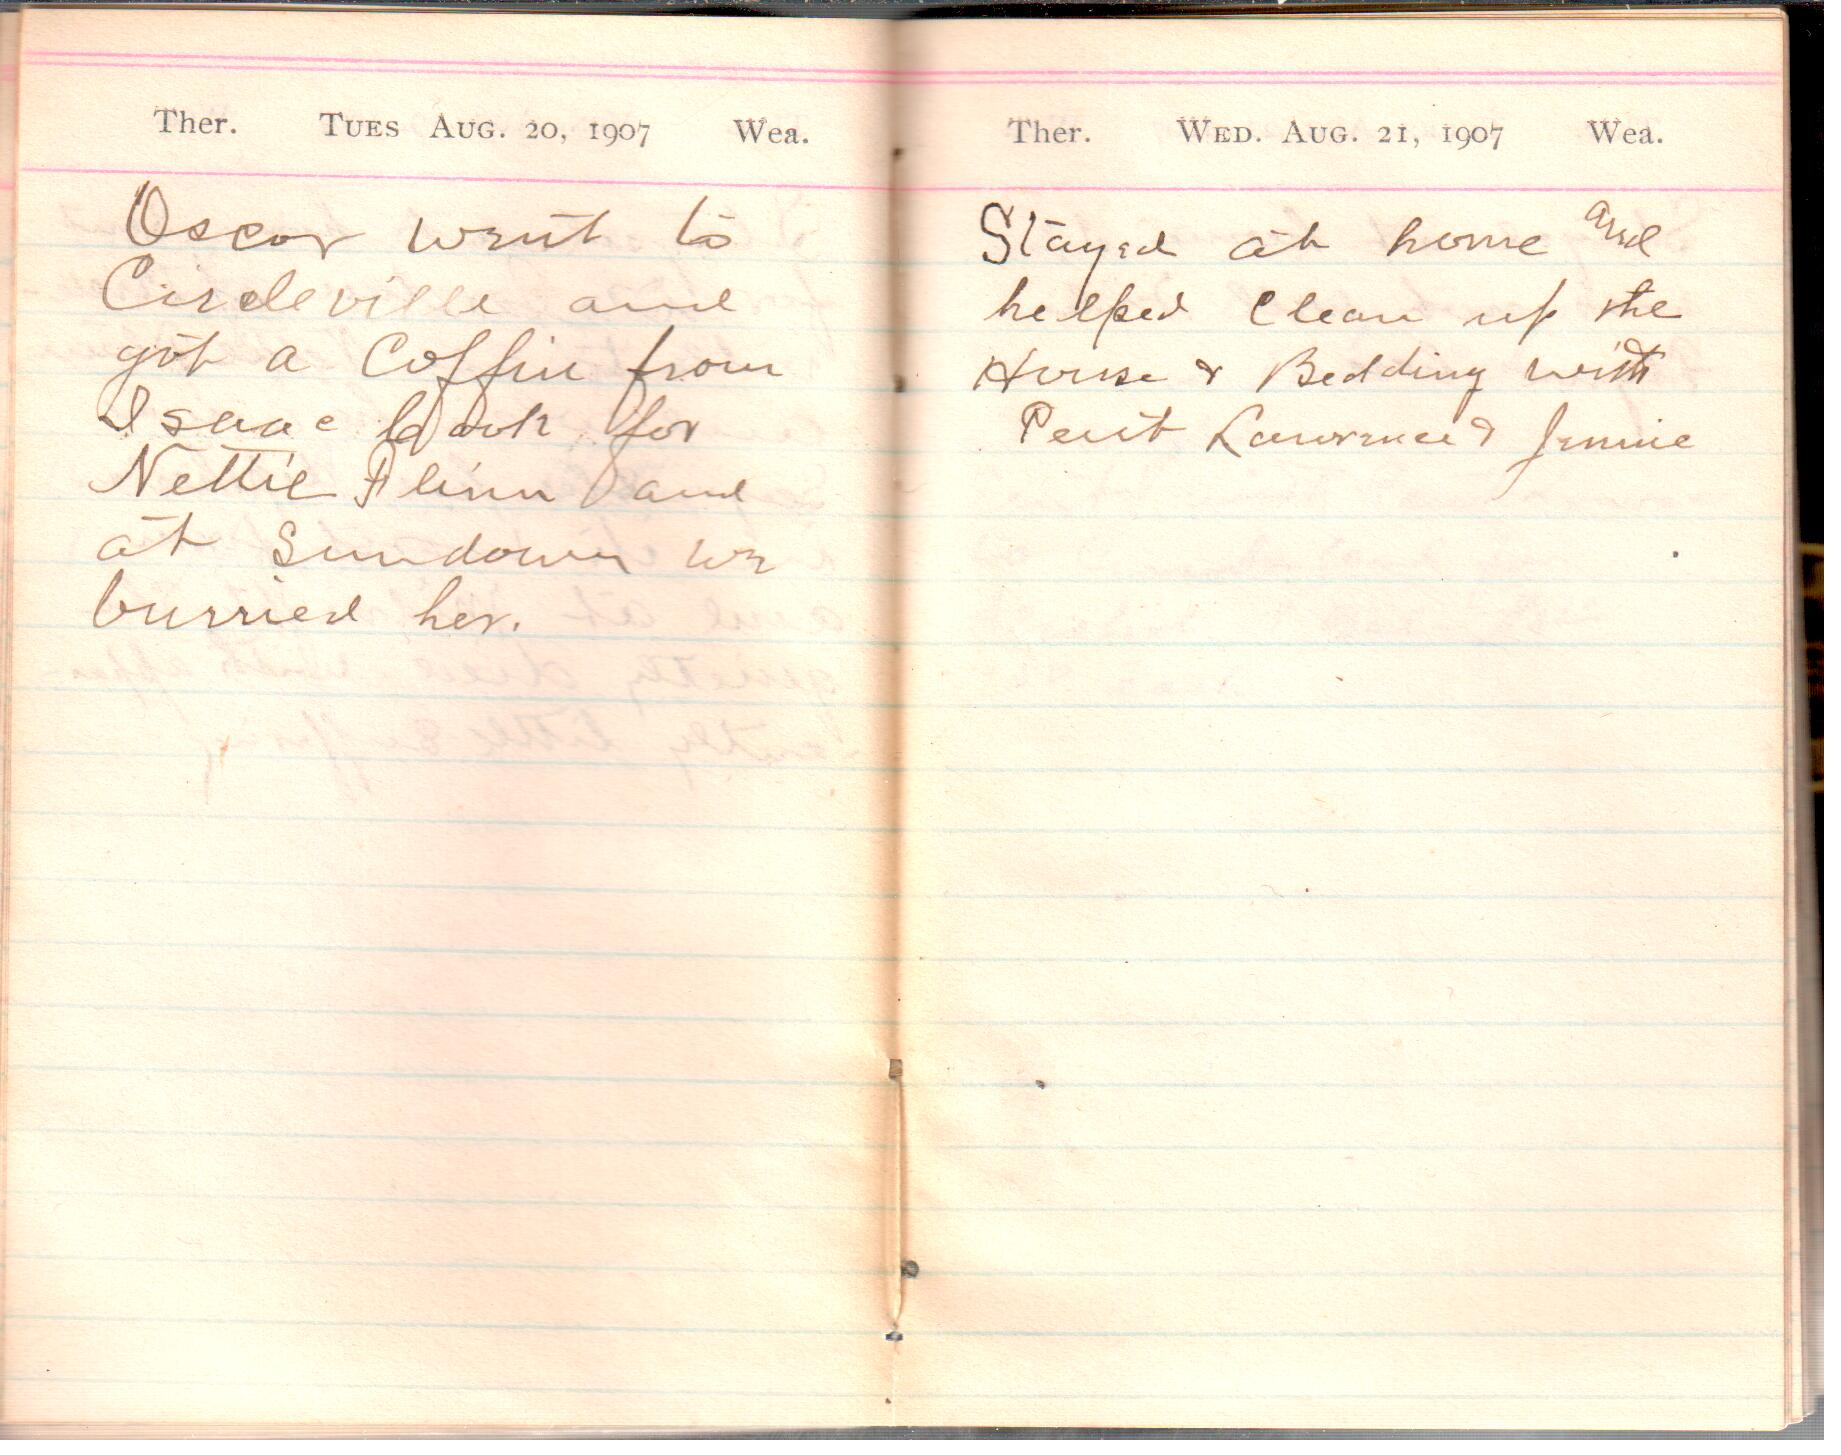 Ther. Tues Aug. 20, 1907 Wea.
Oscar went to
Circleville and
got a Coffin from
Isaac for
Nettie Flinn and
at Sundown we
burried her.
Ther. Wed. Aug. 21, 1907 Wea.
Stayed at home and
helped Clean up the
House & Bedding with
Lawrence & Jennie